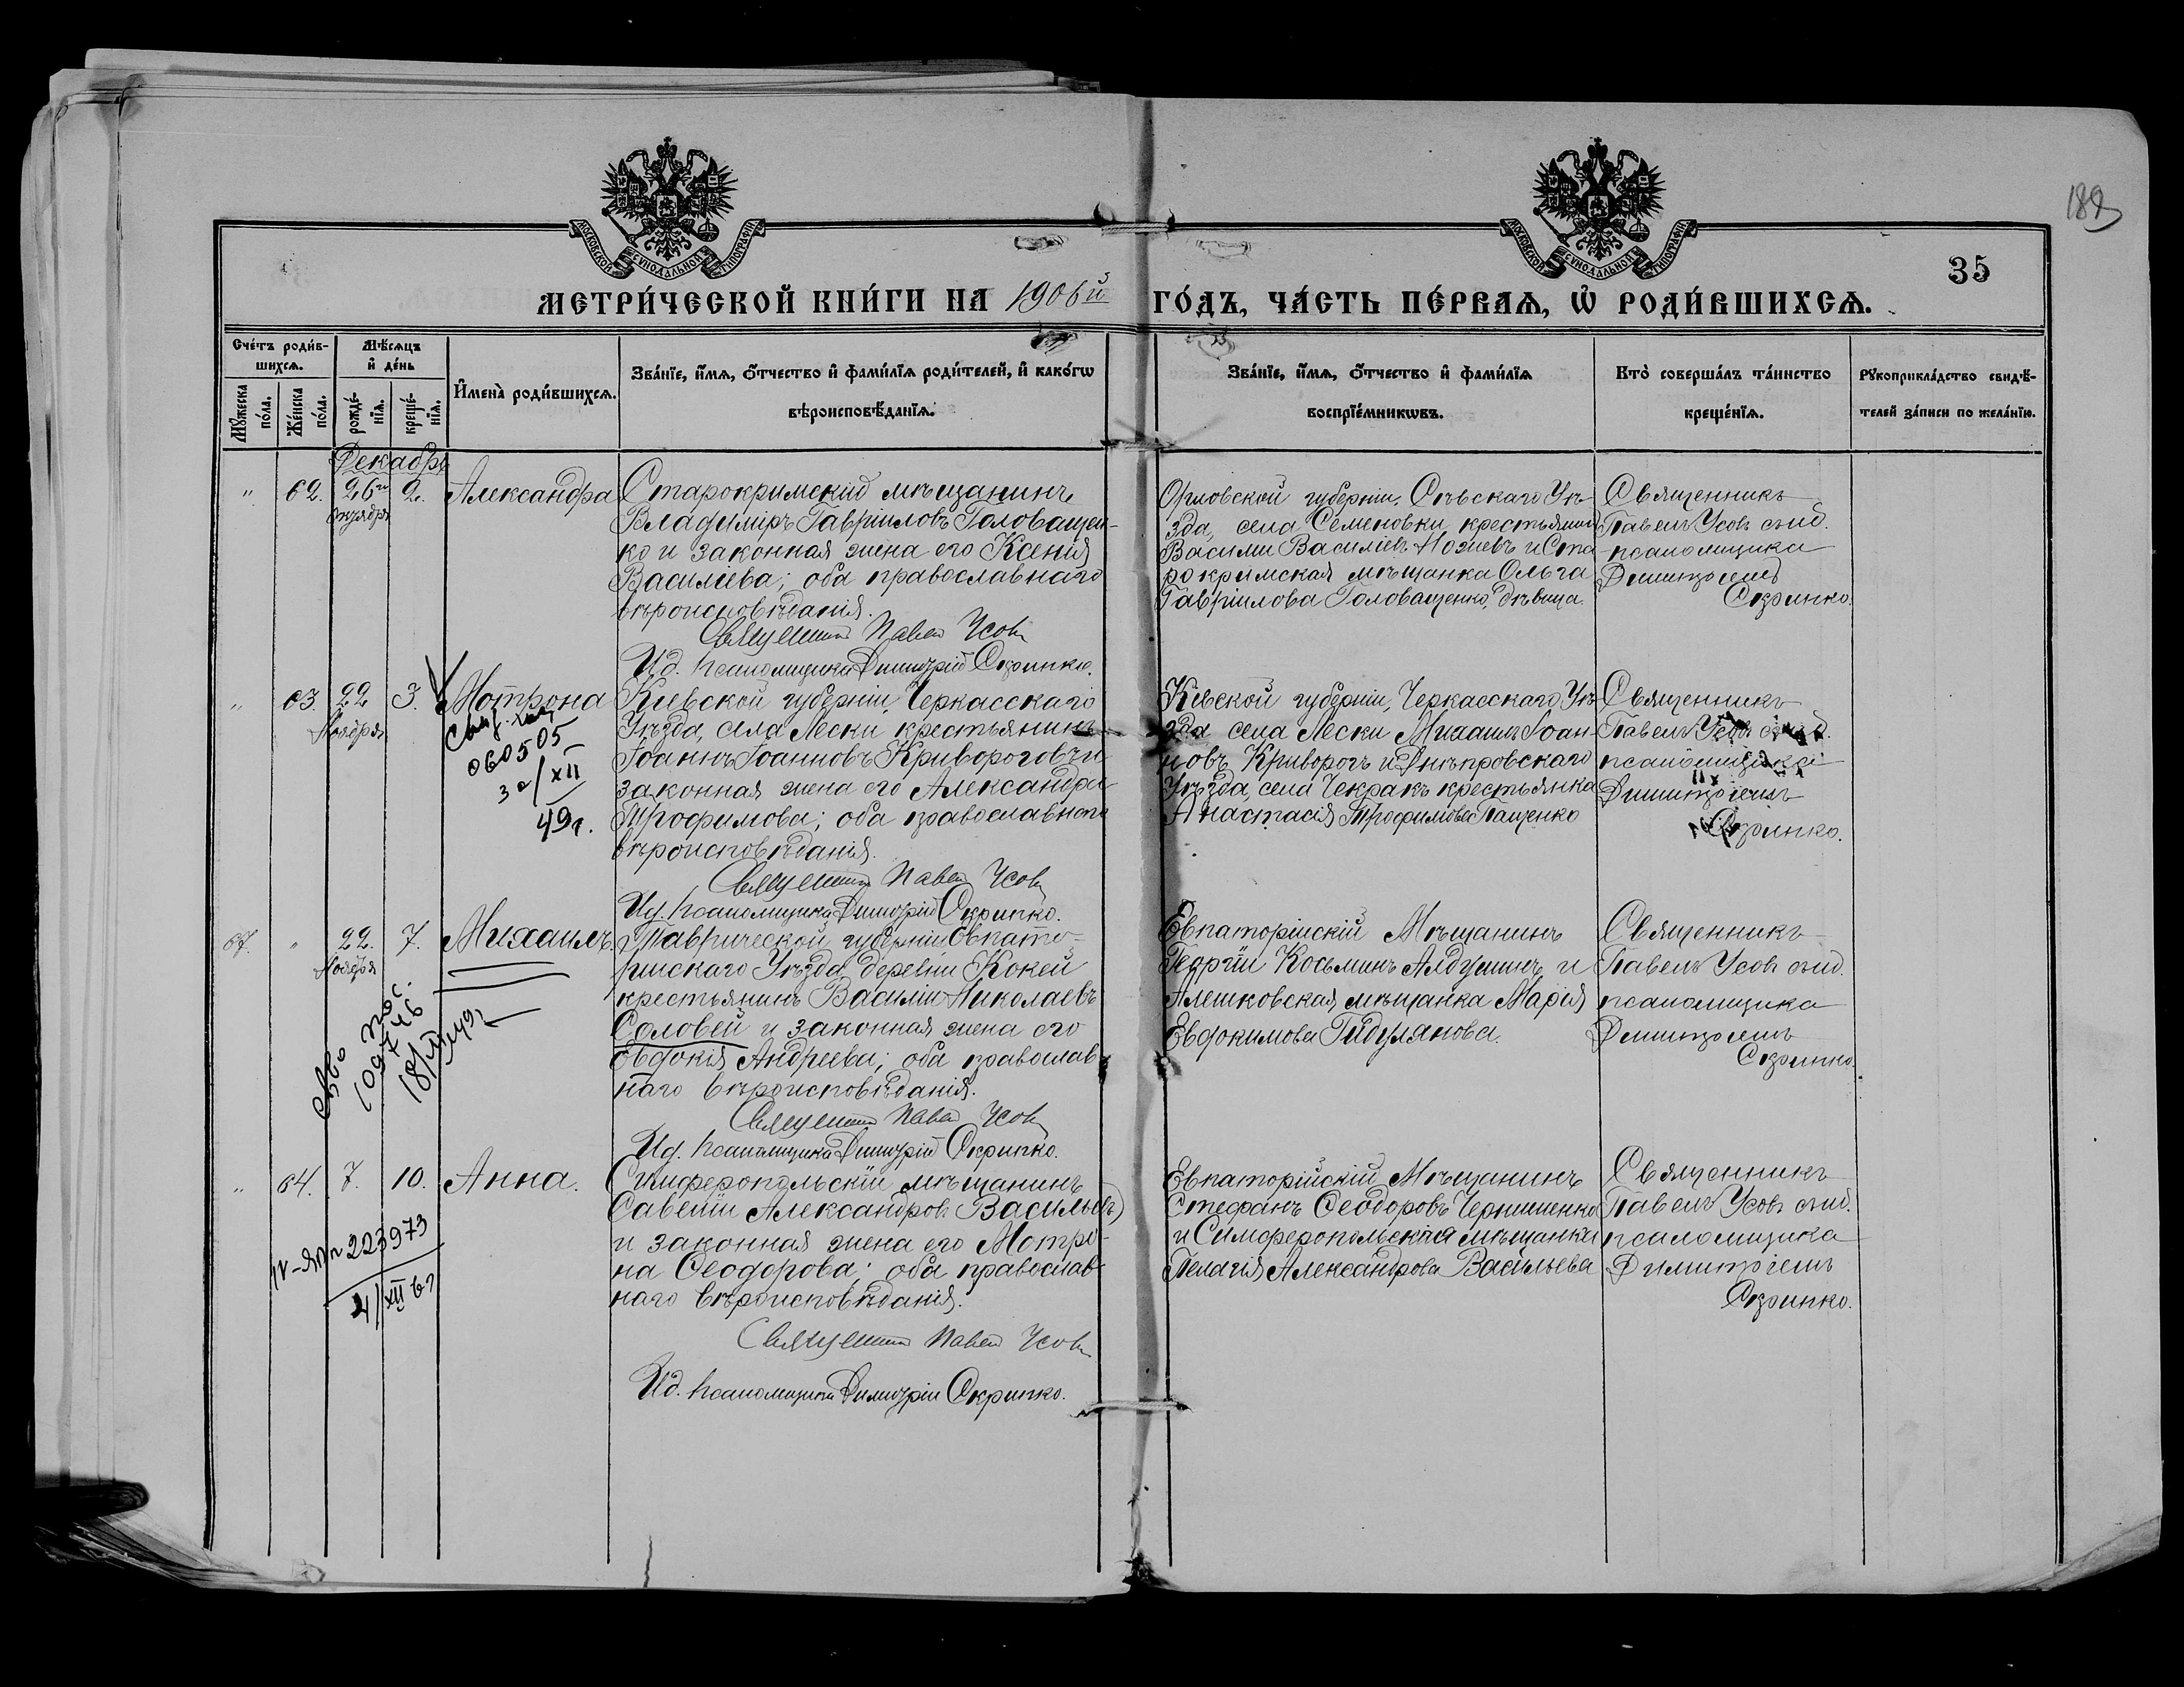 189
35
МОСКОВСКОЙ СѴНОДАЛЬНОЙ ТИПОГРАФІИ
МОСКОВСКОЙ СѴНОДАЛЬНОЙ ТИПОГРАФІИ
МЕТРИ́ЧЕСКОЙ КНИ́ГИ НА 1906й ГО́ДЪ, ЧА́СТЬ ПЕ́РВАѦ, Ѡ҆ РОДИ́ВШИХСѦ.
Сче́тъ роди́в-
шихсѧ.
Мꙋ́жеска
по́ла.
Же́нска
по́ла.
Мѣ́сѧцъ
и҆ де́нь
рожде́-
нїѧ.
креще́-
нїѧ.
И҆мена̀ роди́вшихсѧ.
Зва́нїе, и҆́мѧ, ѻ҆́тчество и҆ фами́лїѧ роди́телей, и҆ како́гѡ
вѣроисповѣ́данїѧ.
Зва́нїе, и҆́мѧ, ѻ҆́тчество и҆ фами́лїѧ
воспрїе́мникѡвъ.
Кто̀ соверша́лъ та́инство
креще́нїѧ.
Рꙋкоприкла́дство свидѣ́-
телей за́писи по жела́нїю.
Декабрь
" 62. 26го 2. Александра
Старокримскій мѣщанинъ
Владиміръ Гавріиловъ Головащен-
ко и законная жена его Ксенія
Василіева; оба православнаго
вѣроисповѣданія.
Священникъ Павелъ Усовъ
Ид. псаломщика Димитрій Скрипко.
Орловской губерніи, Сѣвскаго Уѣ-
зда, села Семеновки, крестьянинъ
Василій Василіевъ и Ста-
рокримская мѣщанка Ольга
Гавріилова Головащенко, дѣвица.
Священникъ
Павелъ Усовъ съ ид.
псаломщика
Димитріемъ
Скрипко.
" 63. 22 3. Мотрона
Ноября
060505
XII
49г.
Кіевской губерніи, Черкасскаго
Уѣзда, села Лески крестьянинъ
Іоаннъ Іоанновъ Криворогъ и
законная жена его Александра
Трофимова; оба православнаго
вѣроисповѣданія.
Священникъ Павелъ Усовъ
Ид. псаломщика Димитрій Скрипко.
Кіевской губерніи, Черкасскаго Уѣ-
зда села Лески Михаилъ Іоан-
новъ Криворогъ и Днѣпровскаго
Уѣзда, села Чекракъ крестьянка
Анастасія Трофимова Пащенко
Священникъ
Павелъ Усовъ съ ид.
псаломщика
Димитріемъ
Скрипко.
67. " 22. 7. Михаилъ.
Ноября
109746
Таврической губерніи Евпато-
рійскаго Уѣзда, деревни Кокей
крестьянинъ Василій Николаевъ
Соловей и законная жена его
Евдокія Андреева; оба православ-
наго вѣроисповѣданія.
Священникъ Павелъ Усовъ
Ид. псаломщика Димитрій Скрипко.
Евпаторійскій Мѣщанинъ
Георгій Косьминъ и
Алешковская мѣщанка Марія
Евдокимова Гидулянова.
Священникъ
Павелъ Усовъ съ ид.
псаломщика
Димитріемъ
Скрипко.
" 64. 7. 10. Анна.
223973
Симферопольскій мѣщанинъ
Савелій Александровъ Васильевъ
и законная жена его Мотро-
на Ѳеодорова; оба православ-
наго вѣроисповѣданія.
Священникъ Павелъ Усовъ
Ид. псаломщика Димитрій Скрипко.
Евпаторійскій Мѣщанинъ
Стефанъ Ѳеодоровъ Чернишенко
и Симферопольская мѣщанка
Пелагія Александрова Васильева
Священникъ
Павелъ Усовъ съ ид.
псаломщика
Димитріемъ
Скрипко.